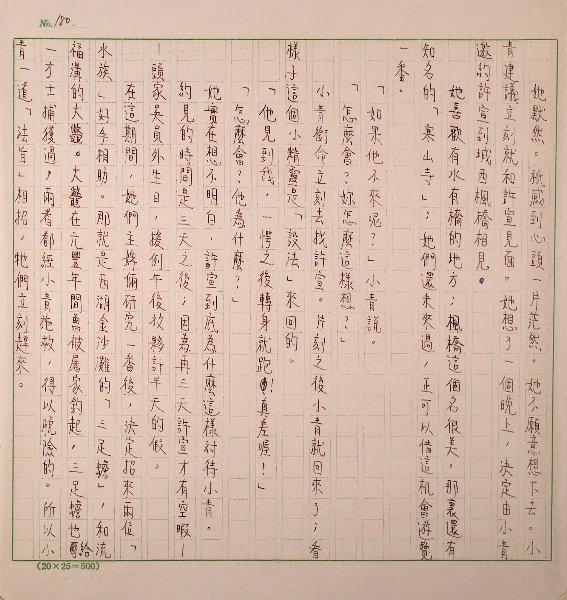 No. 180.
她默然。祇感到心頭一片茫然。她不願意想下去。小
青建議立刻就和許宣見面。她想了一個晚上，決定由小青
邀約許宣到城西楓橋相見。
她喜歡有水有橋的地方；楓橋這個名很美，那裏還有
知名的「寒山寺」；她們還未來過，正可以借這機會遊覽
一番。
「如果他不來呢？」小青說。
「怎麼會？妳怎麼這樣想？」
小青銜命立刻去找許宣。片刻之後小青就回來了；看
樣子這個小精靈是「設法」來回的。
「他見到我，一愣之後轉身就跑！真差喔！」
「怎麼會？他為什麼？」
她實在想不明白，許宣到底為什麼這樣對待小青。
約見的時間是三天之後；因為再三天許宣才有空暇—
—頭家吳員外生日，援例午後放夥計半天的假。
在這期間，她們主婢倆研究一番後，決定招來兩位「
水族」好手相助。那就是西湖金沙灘的「三足蟾」，和流
福溝的大鼈。大鼈在元豐年間萬被屠家釣起，三足蟾也給
一方士捕獲過，兩者都經小青施救，得以脫險的。所以小
青一道「法旨」相招，牠們立刻趕來。
(20×25=500)